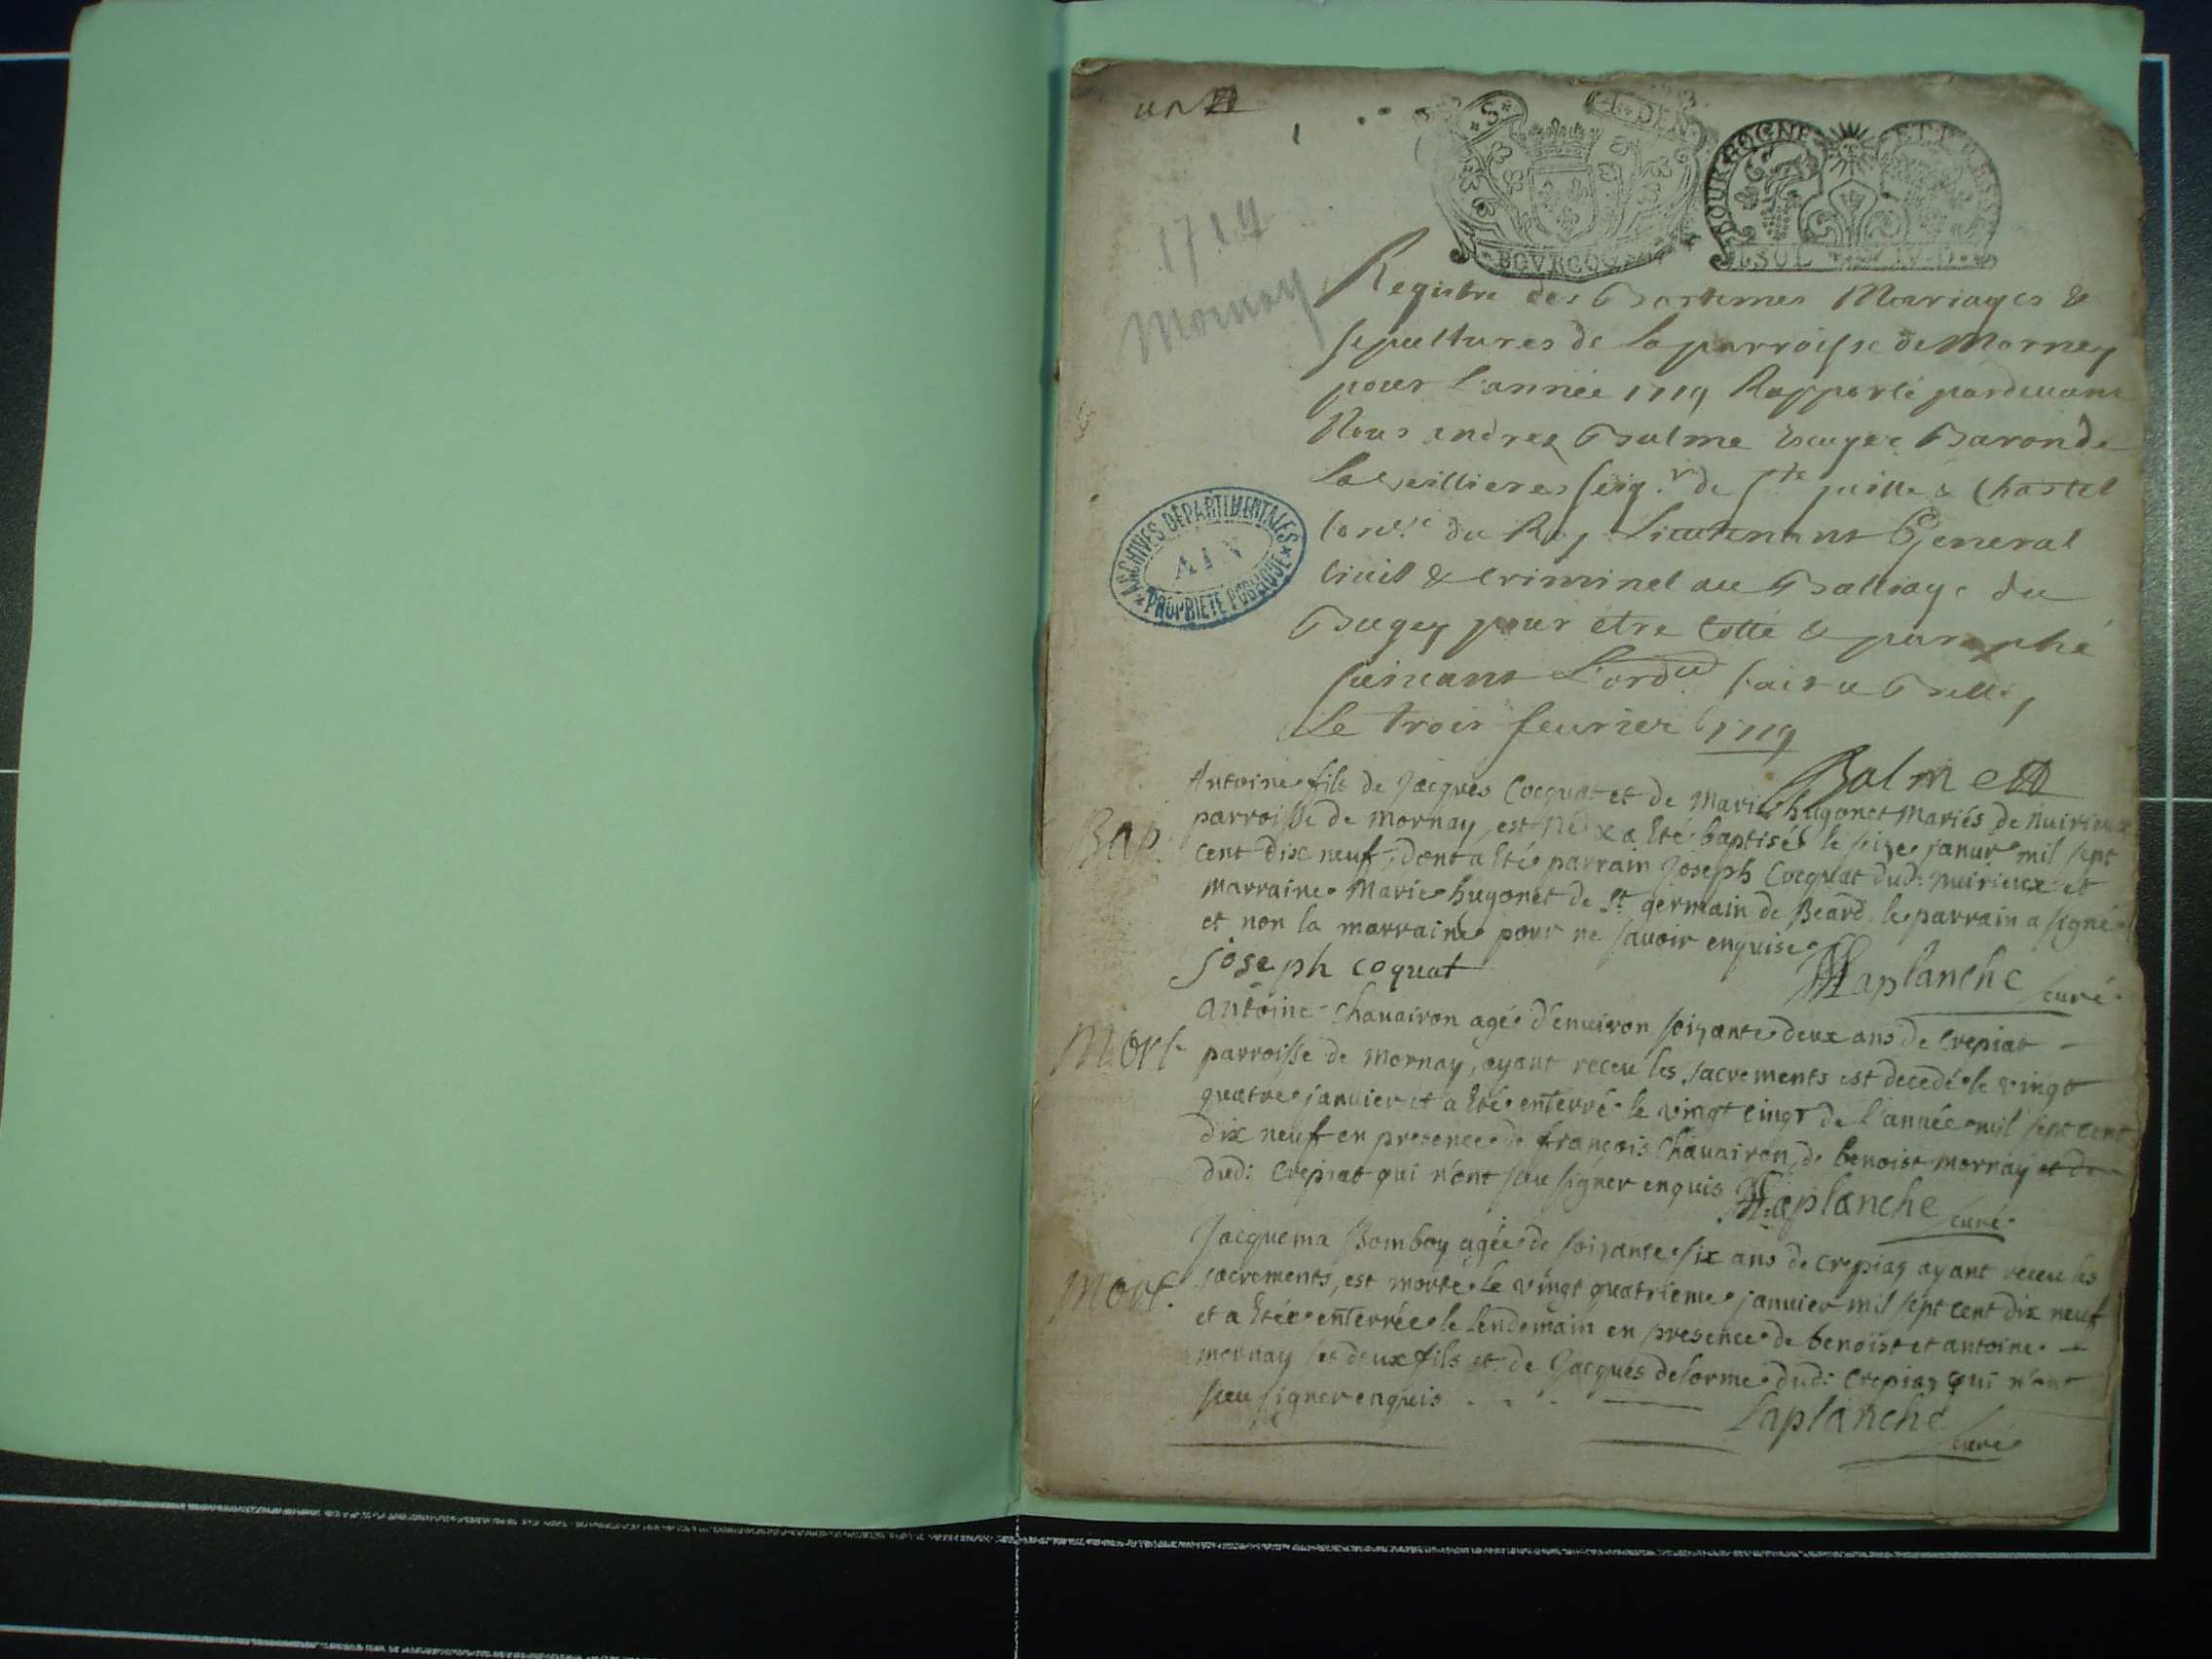 un
1719
Mornay
S
4. DEN
BOURGOG
BOURGOGNE ET BRESSE
I SOL IV D
Registre des Baptemes Mariages &
sepultures de la parroisse de Mornay
pour l'année 1719 Rapporté pardeuant
Nous andrez Balme Escuyer Baron de
seigr. de Ste Chastel
Conser. du Roy Lieutenant General
Ciuil & Criminel au Balliage du
Bugey pour être Cotté & paraphé
suiuant L'ordce. fait a Belley
Le trois feurier 1719
Balme
ARCHIVES DÉPARTEMENTALES
AIN
PROPRIÉTÉ PUBLIQUE
Bap.
Antoine fils de Jacques Cocquat et de Marie hugonet Mariés de Nuirieux
parroisse de Mornay, est né & a Eté baptisé le seize januier mil sept
cent dix neuf, dont a Eté parrain Joseph Cocquat dud: nuirieux et
marraine Marie hugonet de St germain de Beard. le parrain a signé
et non la marraine pour ne sauoir enquise
joseph coquat
Laplanche curé
Mort
Antoine Chauairon agé d'enuiron soizante deux ans de Crepiat
parroisse de Mornay, ayant receu les sacrements est decedé le vingt
quatre januier et a Eté enterré le vingt cinq de l'année mil sept cent
dix neuf en presence de françois Chauairon, de benoist mornay et de
dud: Crepiat qui n'ont sceu signer enquis
Laplanche curé
Mort.
Jacquema Bomboy agée de soizante six ans de Crepiaz ayant receu les
sacrements, est morte le vingt quatrieme januier mil sept cent dix neuf
et a Etée enterrée le lendemain en presence de benoist et antoine
mornay ses deux fils et de Jacques delorme dud: Crepiaz qui n'ont
sceu signer enquis
Laplanche curé